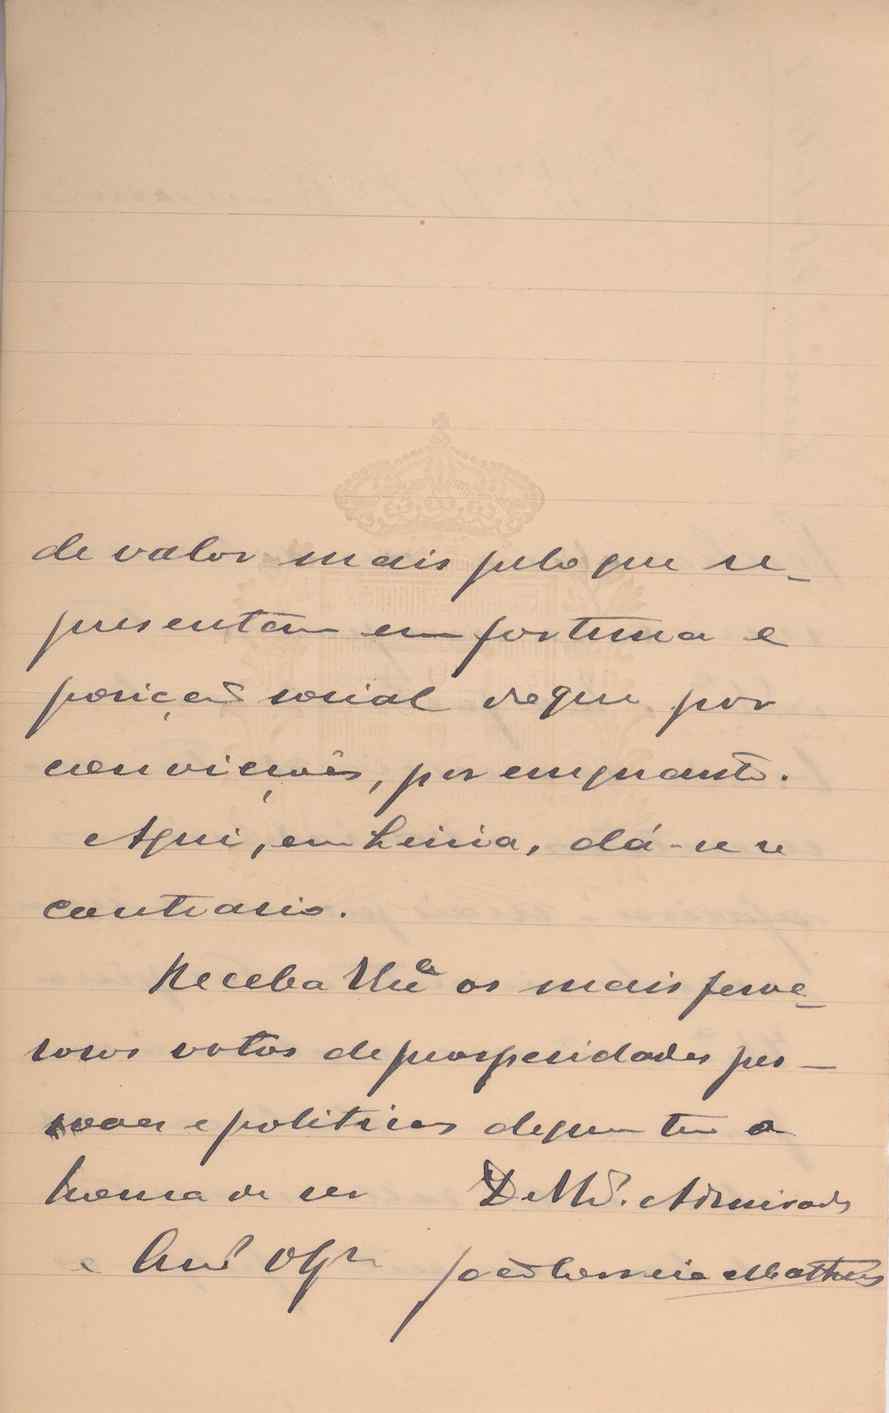 de valor mais pelo que re-
presentam em fortuna e
posição social do que por
convicções, por emquanto.
Aqui, em Leiria, dá-se o
contrario.
Receba V. Ex.ª os mais fervo-
rosos votos de prosperidades pes-
soaes e politicas de quem tem a
honra de ser De V. Ex.ª Admirador
e Am.º Obg.º João Correia Matheus